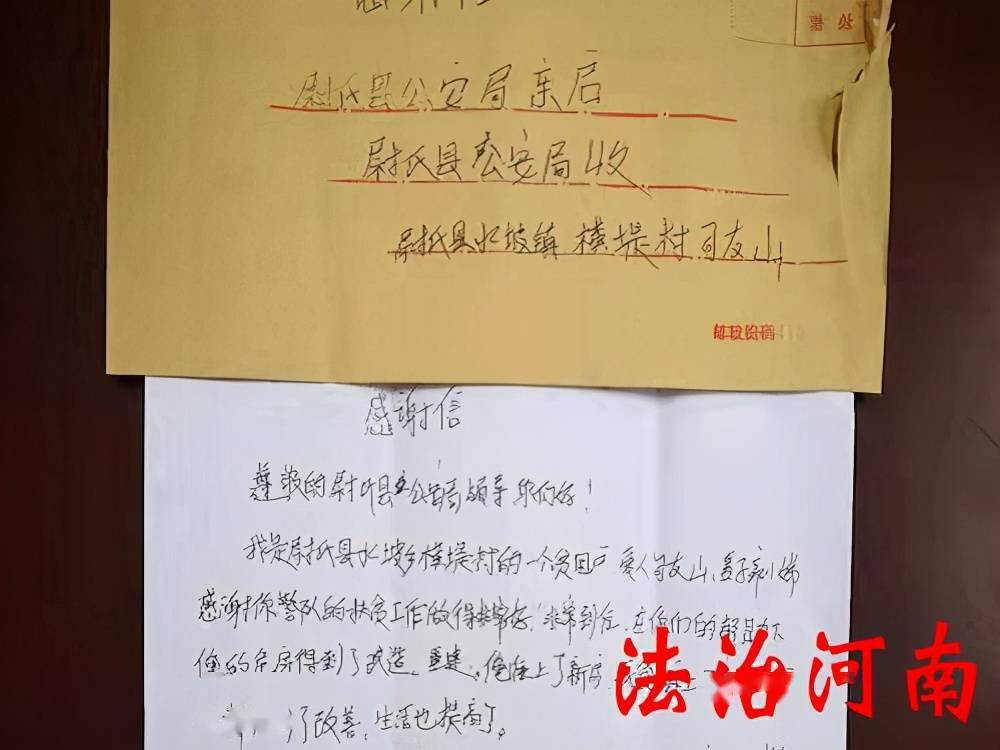 感谢信
公 安
尉氏县公安局亲启
尉氏县公安局收
尉氏县水坡镇横堤村司友山
感谢信
尊敬的尉氏县公安局领导你们好！
我是尉氏县水坡乡横堤村的一个贫困户 爱人司友山、
感谢你警队的扶贫工作做得非常好、非常到位、在你们的帮助下
俺的危房得到了改造、重建、俺住上了新房
了改善、生活也提高了。
法治河南